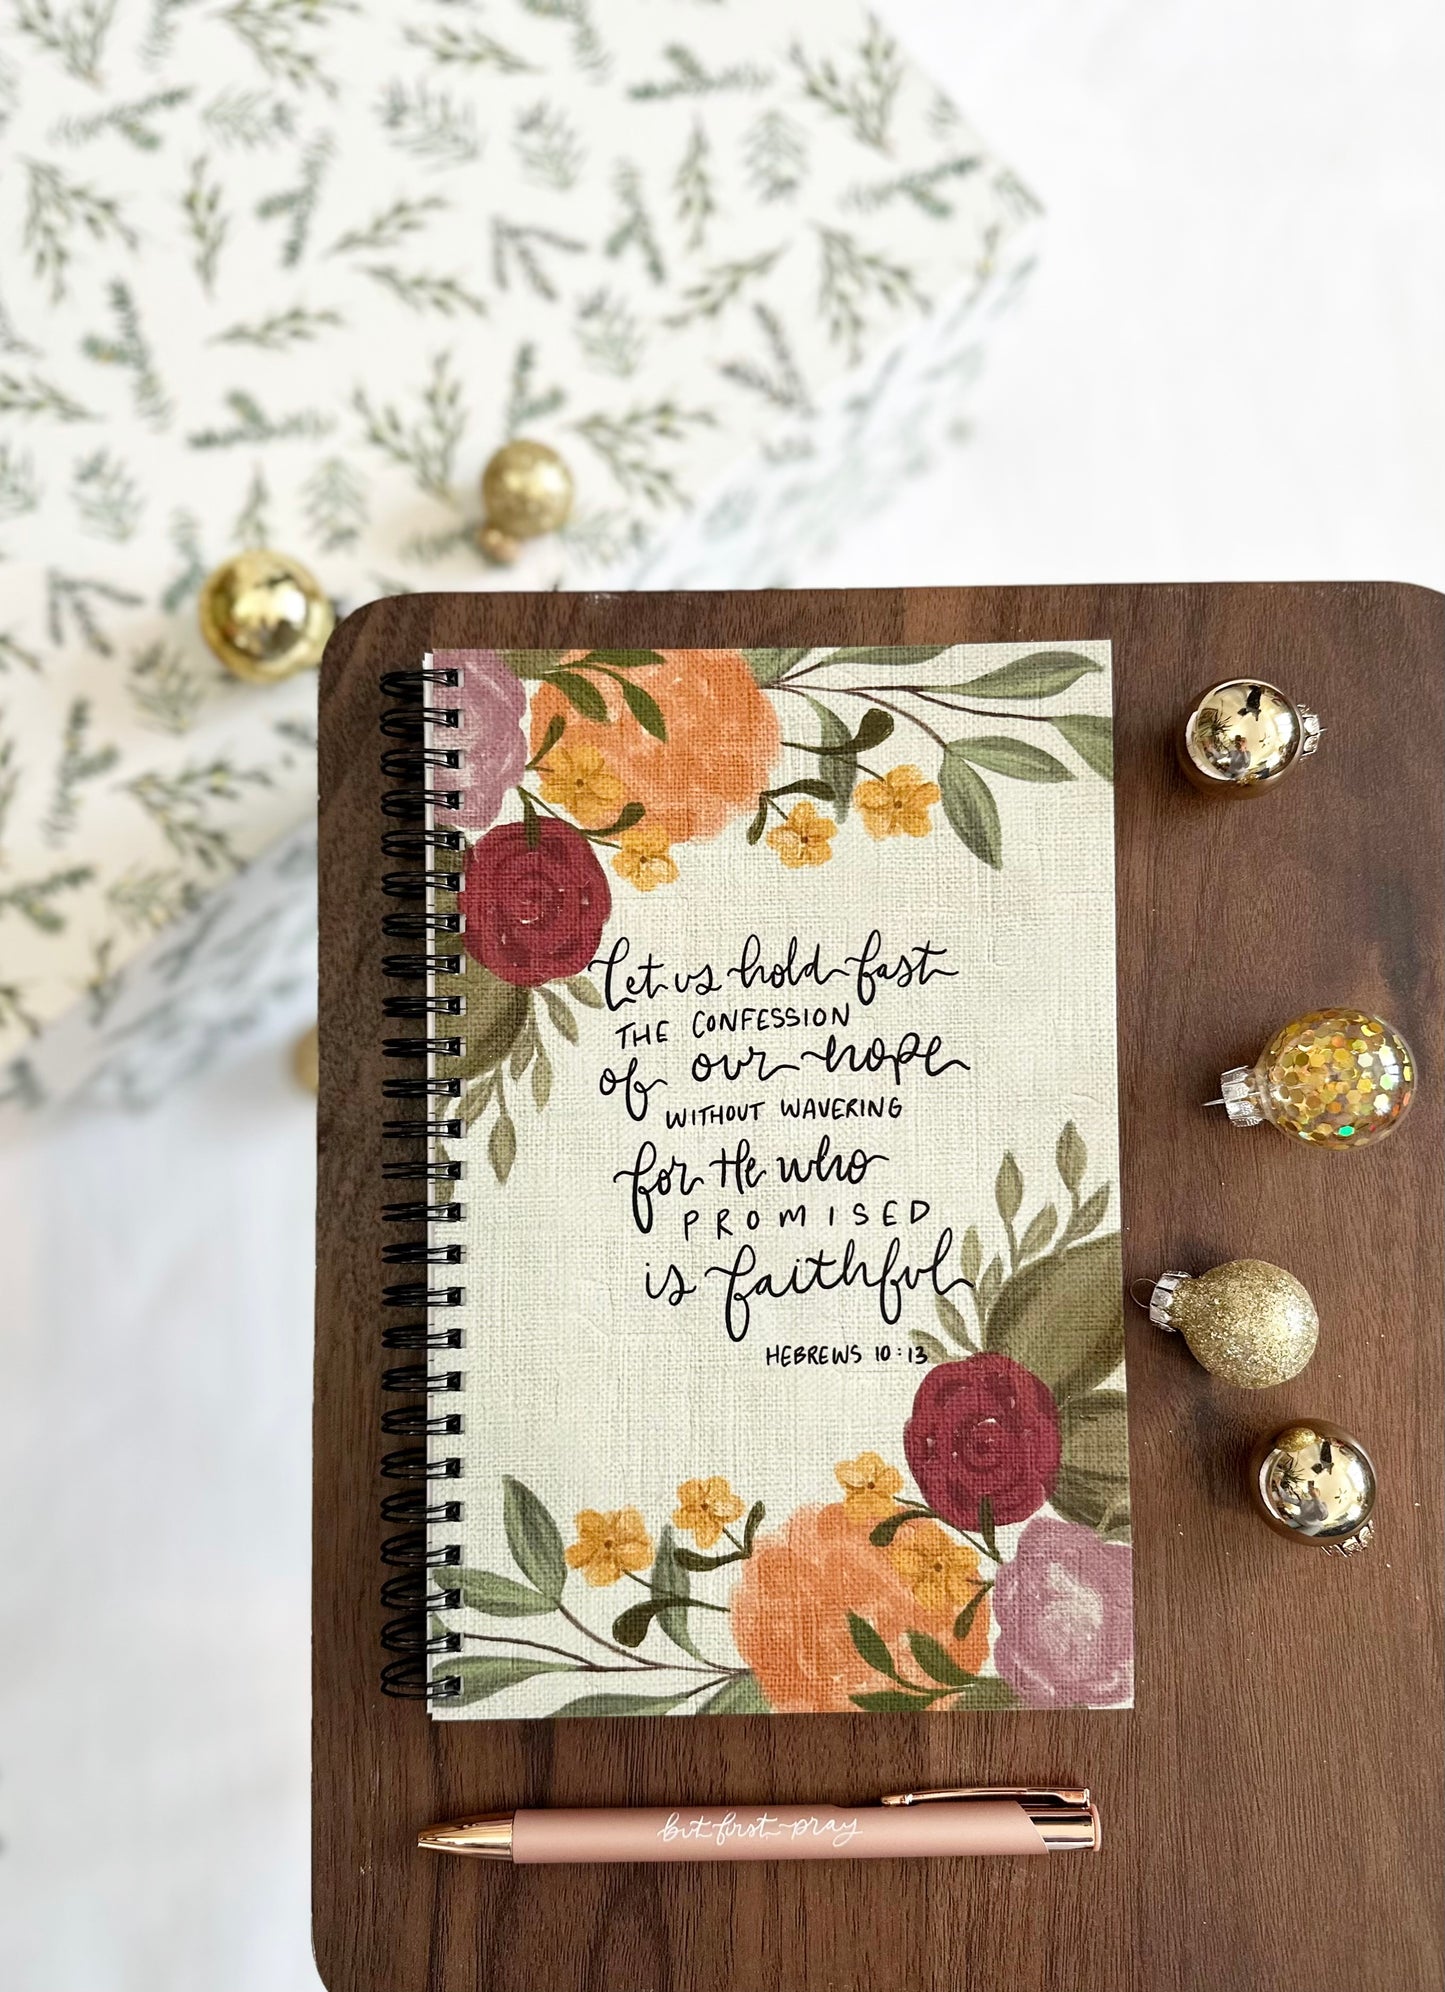 Let us hold fast
THE CONFESSION
of our hope
WITHOUT WAVERING
for He who
PROMISED
is faithful
HEBREWS 10:13
but first pray